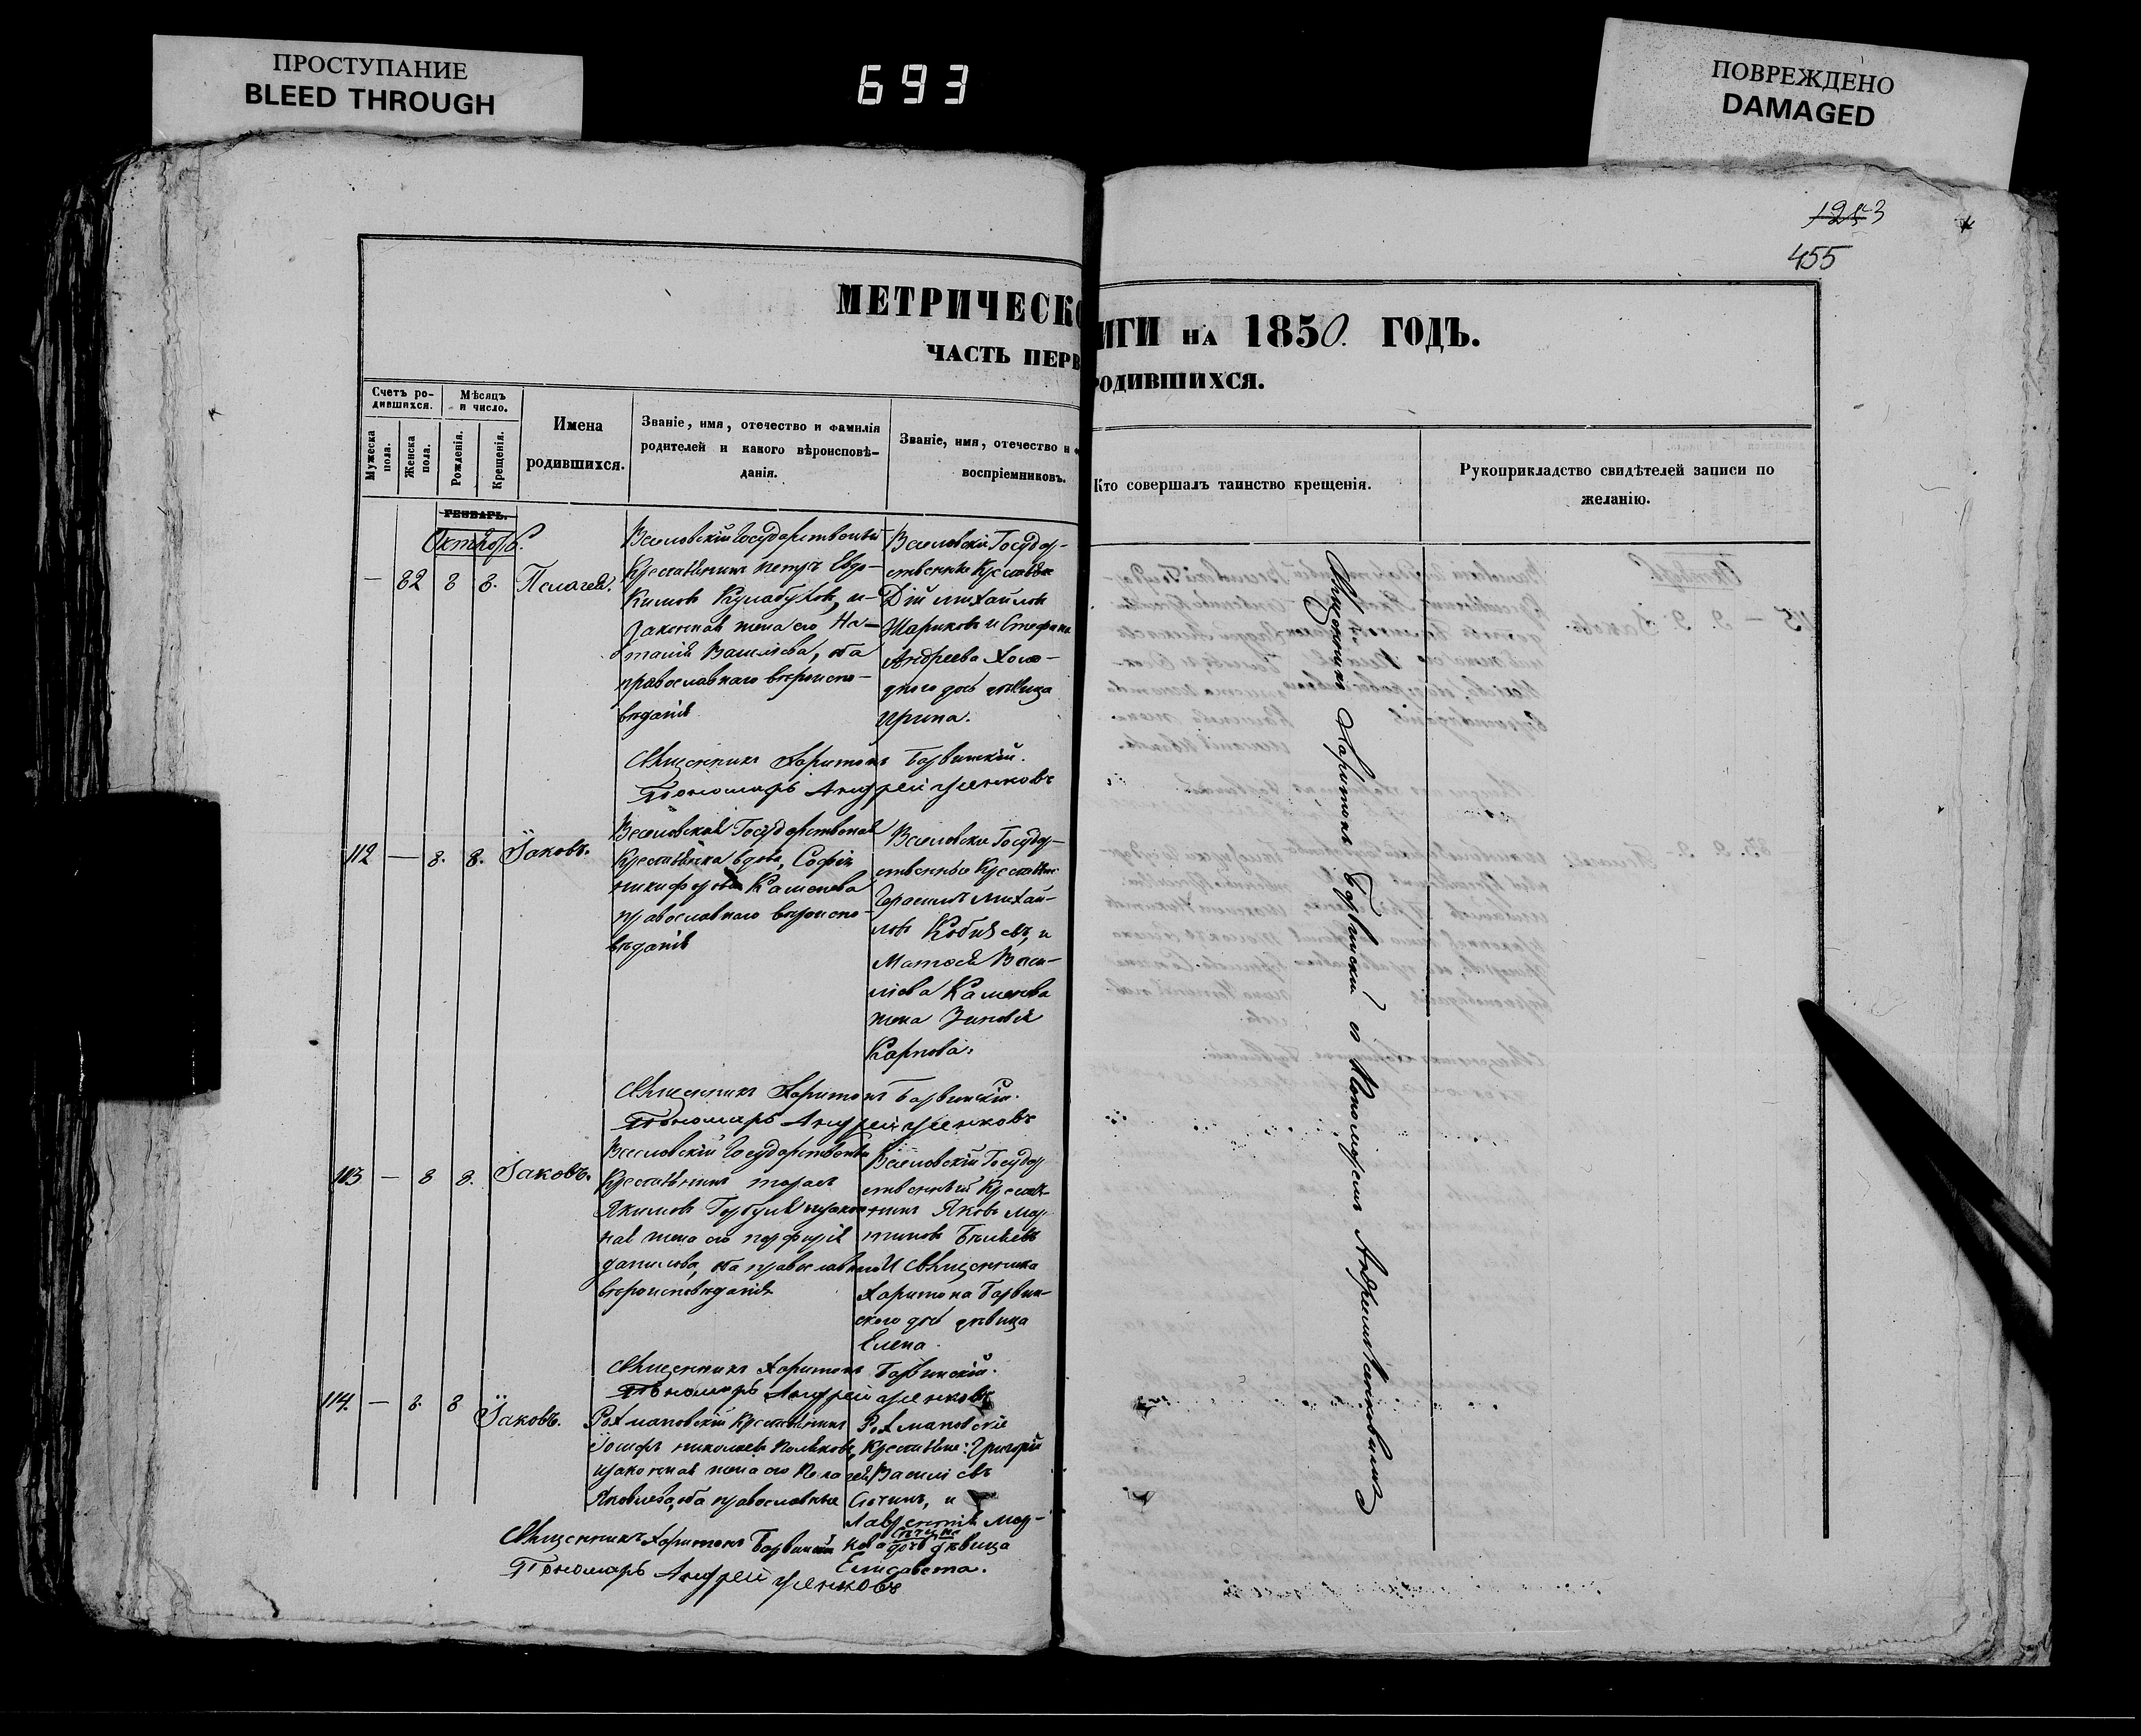 ПРОСТУПАНИЕ
BLEED THROUGH
693
ПОВРЕЖДЕНО
DAMAGED
1253
455
МЕТРИЧЕСКО
ИГИ НА 1850. ГОДЪ.
ЧАСТЬ ПЕРВ
РОДИВШИХСЯ.
Счетъ ро-
дившихся.
Мѣсяцъ
и число.
Мужеска
пола.
Женска
пола.
Рожденія.
Крещенія.
Имена
родившихся.
Званіе, имя, отечество и фамилія
родителей и какого вѣроисповѣ-
данія.
Званіе, имя, отечество и
воспріемниковъ.
Кто совершалъ таинство крещенія.
Рукоприкладство свидѣтелей записи по
желанію.
ГЕНВАРЬ.
Октябрь.
— 82 8 8. Пелагея.
Веселовскій Государственный
Крестьянинъ Петръ Евдо-
кимовъ и
законная жена его На-
талія Васильева, оба
православнаго вѣроиспо-
вѣданія
Веселовскіе Государ-
ственные Крестьяне
Михайловъ
Шариковъ и Стефана
Андреева Холо-
днаго дочь дѣвица
Ирина.
Священникъ Харитонъ Барвинскій.
Пономарь Андрей Ченковъ
112 — 8. 8. Іаковъ.
Веселовская Государственная
Крестьянка вдова, Софія
Никифорова Каменева
православнаго вѣроиспо-
вѣданія
Веселовскіе Государ-
ственные Крестьяне
Герасимъ Михай-
ловъ Кобизевъ, и
Матвея Васи-
льева Каменева
жена Зиновія
Карпова.
Священникъ Харитонъ Барвинскій.
Пономарь Андрей Ченковъ
113 — 8 8. Іаковъ.
Веселовскій Государственный
Крестьянинъ Тарасъ
Якимовъ и закон
ная жена его Порфирія
Данилова, оба православнаго
вѣроисповѣданія
Веселовскій Государ
ственный Крестья-
нинъ Яковъ Мар
тиновъ Бѣляевъ
и Священника
Харитона Барвин-
скаго дочь дѣвица
Елена.
Священникъ Харитонъ Барвинскій.
Пономарь Андрей Ченковъ
114. — 8. 8 Іаковъ.
Рохмановскій Крестьянинъ
Іосифъ Николаевъ Поляковъ,
и законная жена его Пелагея
Яковлева, оба православные
Рохмановскіе
Крестьяне: Григорій
Васильевъ
Сытинъ, и
Лаврентія Мар-
кова дочь дѣвица
Елисавета.
Священникъ Харитонъ Барвинскій
Пономарь Андрей Ченковъ
Священникъ Харитонъ Барвинскій съ Пономаремъ Андреемъ Ченковымъ